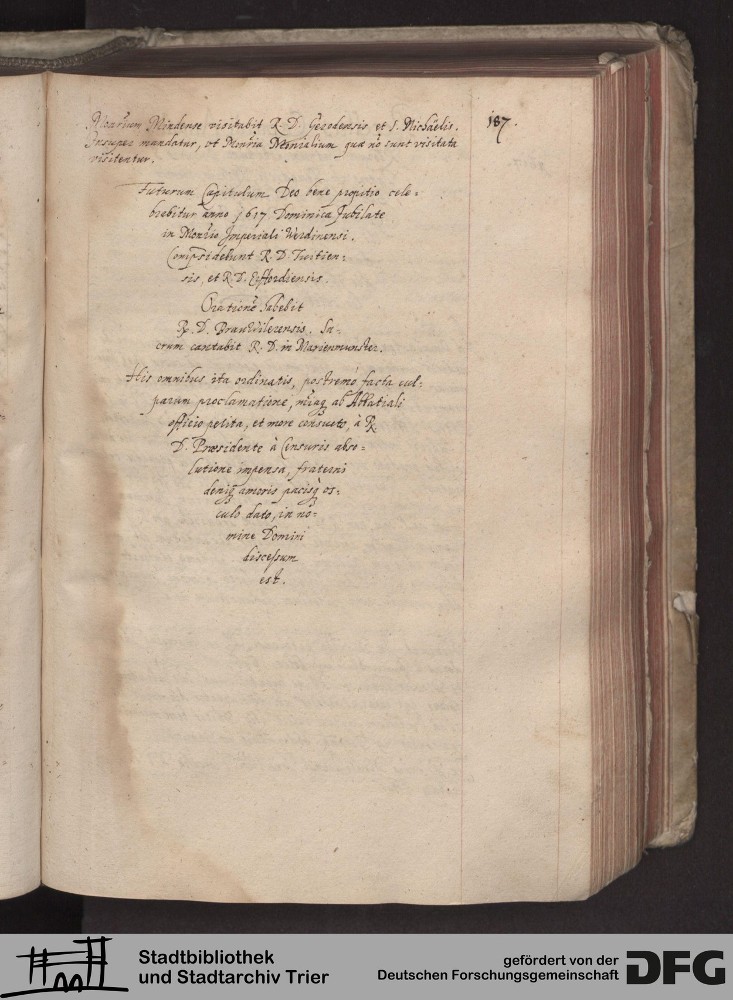 Monrium Mindense visitabit R. D. Gerodensis et S. Michaelis.
187.
Insuper mandatur, vt Monria Monialium quæ nō sunt visitata
visitentur.
Futurum Capitulum Deo bene propitio cele=
brebitur anno 1617 Dominica Jubilate
in Monrio Imperiali Werdinensi.
Compsidebunt R. D. Tuitien=
sis, et R. D. Erffordiensis.
Orationē habebit
R. D. Brauwilerensis. Sa=
crum cantabit R. D. in Marienmunster.
His omnibus ita ordinatis, postremò facta cul=
parum proclamatione, ab Abbatiali
officio petita, et more consueto, à R.
D. Præsidente à Censuris abso=
lutione impensa, fraterni
deniq amoris pacisq os=
culo dato, in no=
mine Domini
discessum
est.
Stadtbibliothek
und Stadtarchiv Trier
gefördert von der
Deutschen Forschungsgemeinschaft
DFG